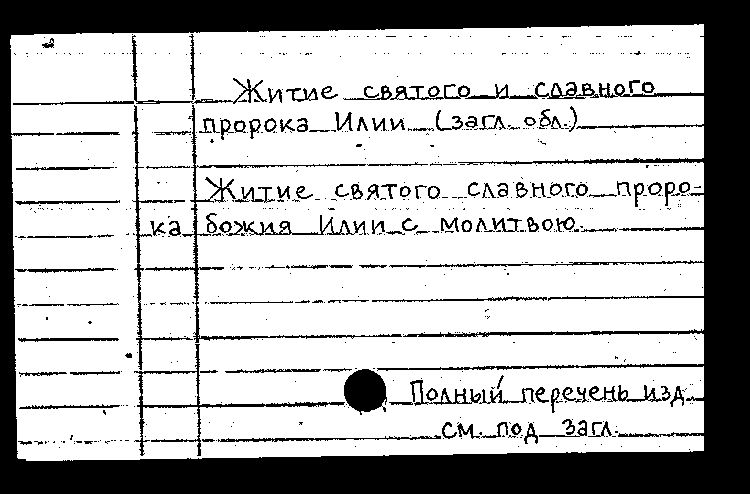 Житие святого и славного
пророка Илии (загл. обл.)
Житие святого славного проро-
ка божия Илии с молитвою.
Полный перечень изд.
см. под загл.